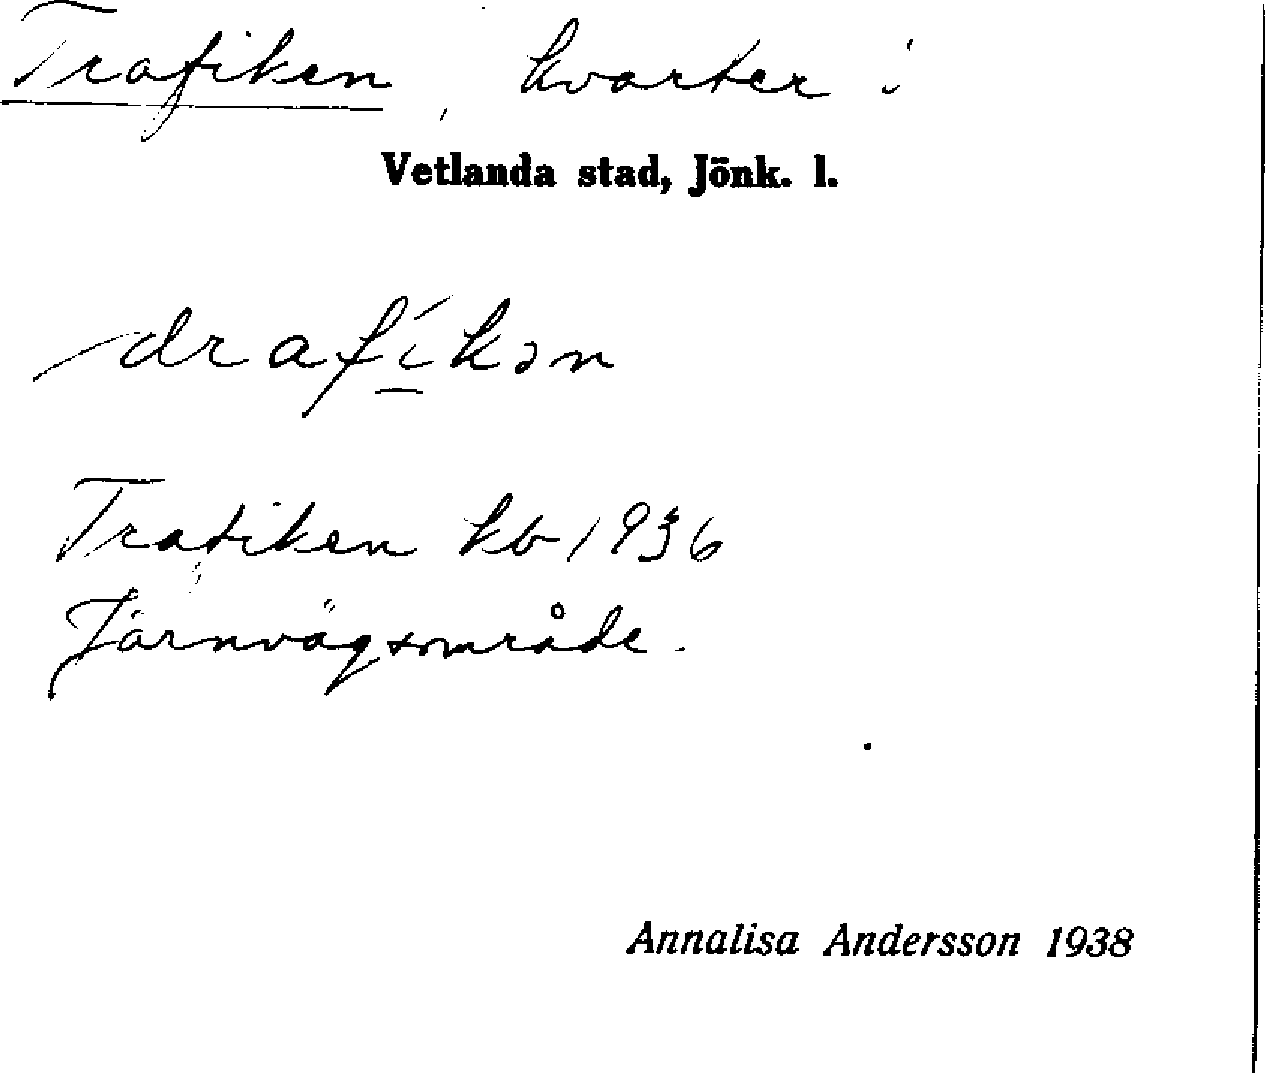 Trafiken, kvarter i
Vetlanda stad, Jönk. l.
drafíkən
Trafiken kb 1936
Järnvägsområde.
Annalisa Andersson 1938